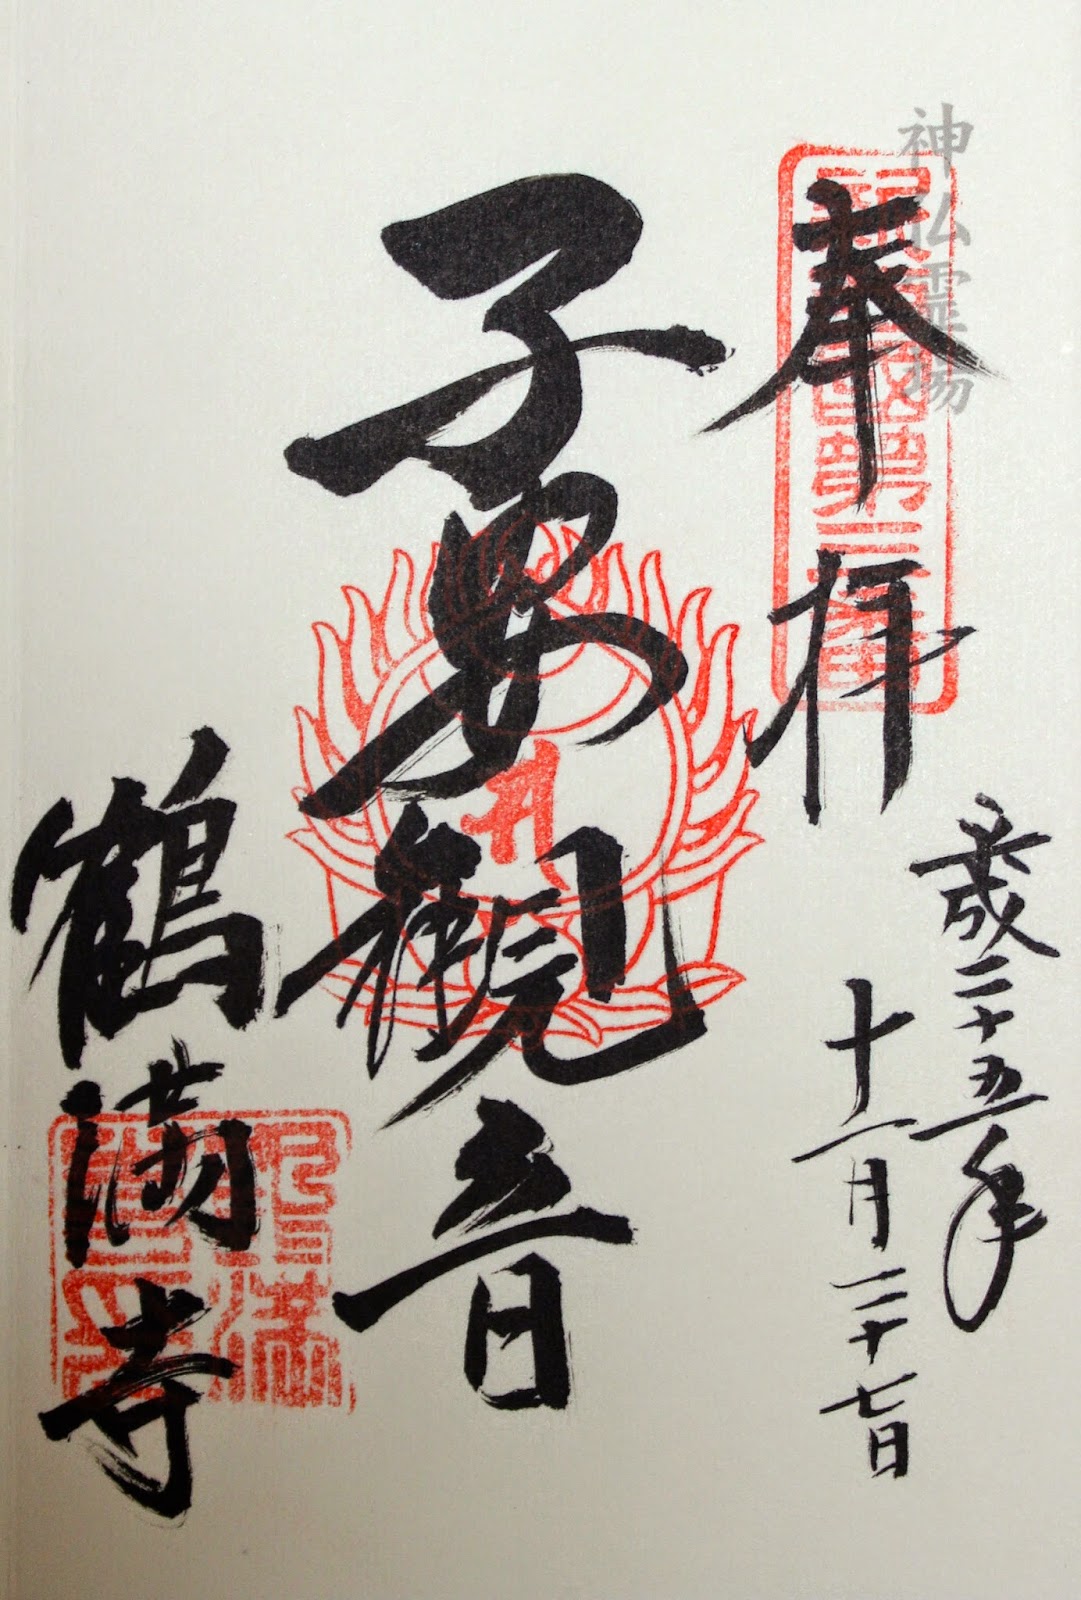 神仏霊場
奉拝
平成二十五年
十一月二十七日
子安観音
鶴満寺